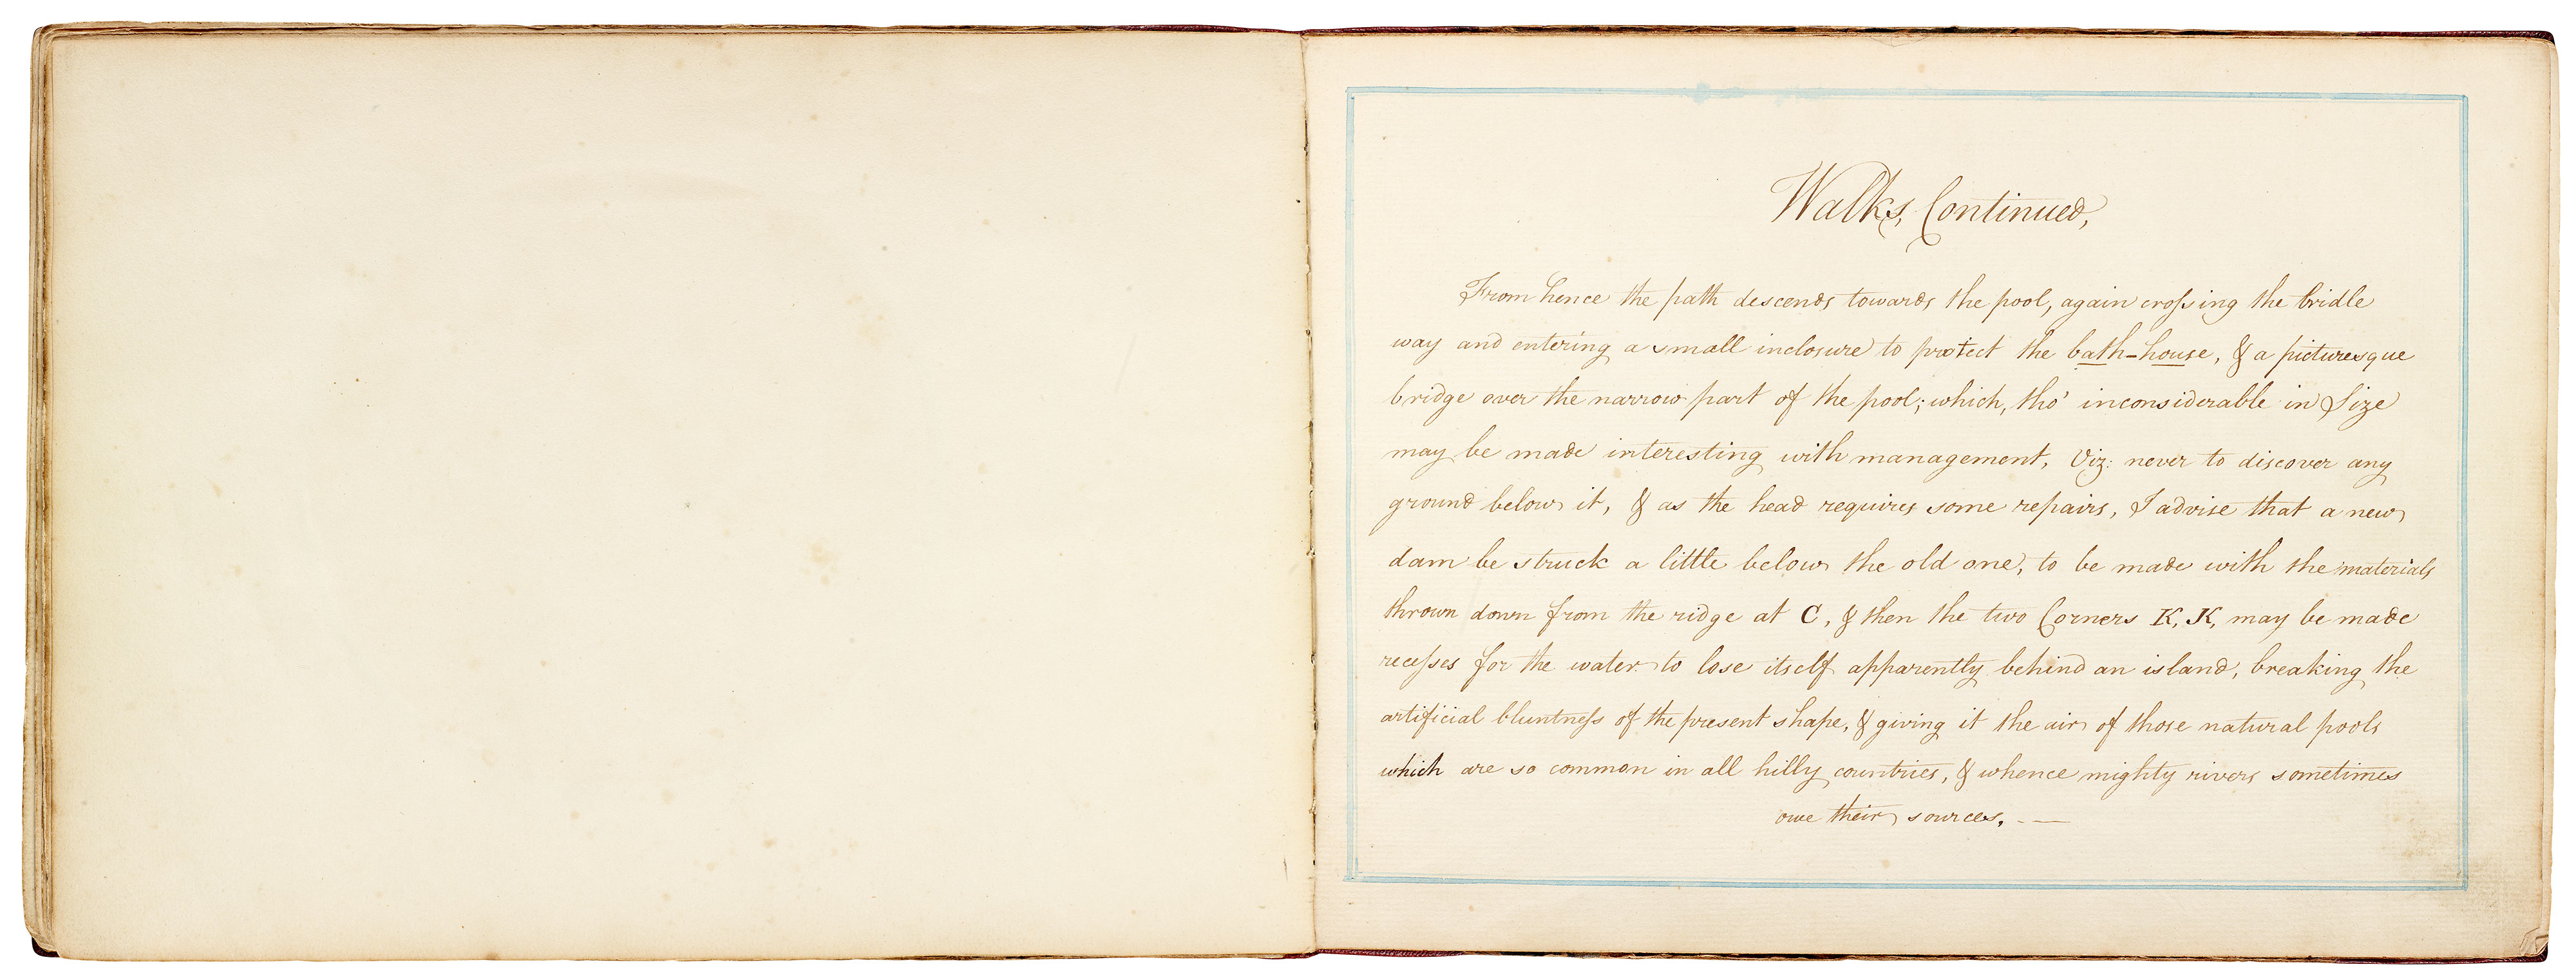 Walks, Continued,
From hence the path descends towards the pool, again crofsing the bridle
way and entering a small inclosure to protect the bath-house, & a picturesque
bridge over the narrow part of the pool; which, tho' inconsiderable in Size
may be made interesting with management, Viz: never to discover any
ground below it, & as the head requires some repairs, I advise that a new
dam be struck a little below the old one, to be made with the materials
thrown down from the ridge at C, & then the two Corners K, K, may be made
recefses for the water to lose itself apparently behind an island, breaking the
artificial bluntnefs of the present shape, & giving it the air of those natural pools
which are so common in all hilly countries, & whence mighty rivers sometimes
owe their sources. —